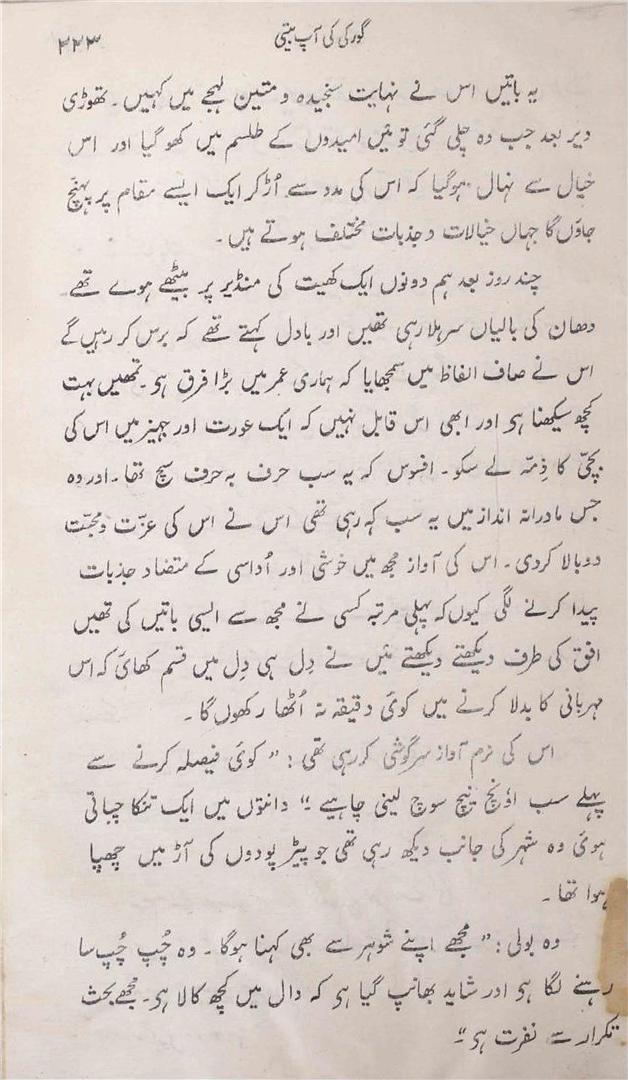 گورکی کی آپ بیتی
۳۲۳
یہ باتیں اس نے نہایت سنجیدہ و متین لہجے میں کہیں۔ تھوڑی
دیر بعد جب وہ چلی گئی تو میں امیدوں کے طلسم میں کھو گیا اور اس
خیال سے نہال ہوگیا کہ اس کی مدد سے اُڑ کر ایک ایسے مقام پر پہنچ
جاؤں گا جہاں خیالات و جذبات مختلف ہوتے ہیں۔
چند روز بعد ہم دونوں ایک کھیت کی منڈیر پر بیٹھے ہوے تھے
دھان کی بالیاں سرہلا رہی تھیں اور بادل کہتے تھے کہ برس کر رہیں گے
اس نے صاف الفاظ میں سمجھایا کہ ہماری عمر میں بڑا فرق ہو۔ تمھیں بہت
کچھ سیکھنا ہو اور ابھی اس قابل نہیں کہ ایک عورت اور جہیز میں اس کی
بچّی کا ذمّہ لے سکو۔ افسوس کہ یہ سب حرف بہ حرف سچ تھا۔ اور وہ
جس مادرانہ انداز میں یہ سب کہ رہی تھی اس نے اس کی عزّت و محبّت
دوبالا کردی۔ اس کی آواز مجھ میں خوشی اور اُداسی کے متضاد جذبات
پیدا کرنے لگی کیوں کہ پہلی مرتبہ کسی نے مجھ سے ایسی باتیں کی تھیں
افق کی طرف دیکھتے دیکھتے میں نے دِل ہی دِل میں قسم کھائ کہ اس
مہربانی کا بدلا کرنے میں کوئ دقیقہ نہ اُٹھا رکھوں گا۔
اس کی نرم آواز سرگوشی کررہی تھی: ”کوئ فیصلہ کرنے سے
پہلے سب اؤنچ نیچ سوچ لینی چاہیے“ دانتوں میں ایک تنکا چباتی
ہوئ وہ شہر کی جانب دیکھ رہی تھی جو پیڑ پودوں کی آڑ میں چھپا
ہوا تھا۔
وہ بولی: ”مجھے اپنے شوہر سے بھی کہنا ہوگا۔ وہ چُپ چُپ سا
رہنے لگا ہو اور شاید بھانپ گیا ہو کہ دال میں کچھ کالا ہو۔ مجھے بحث
تکرار سے نفرت ہو“۔